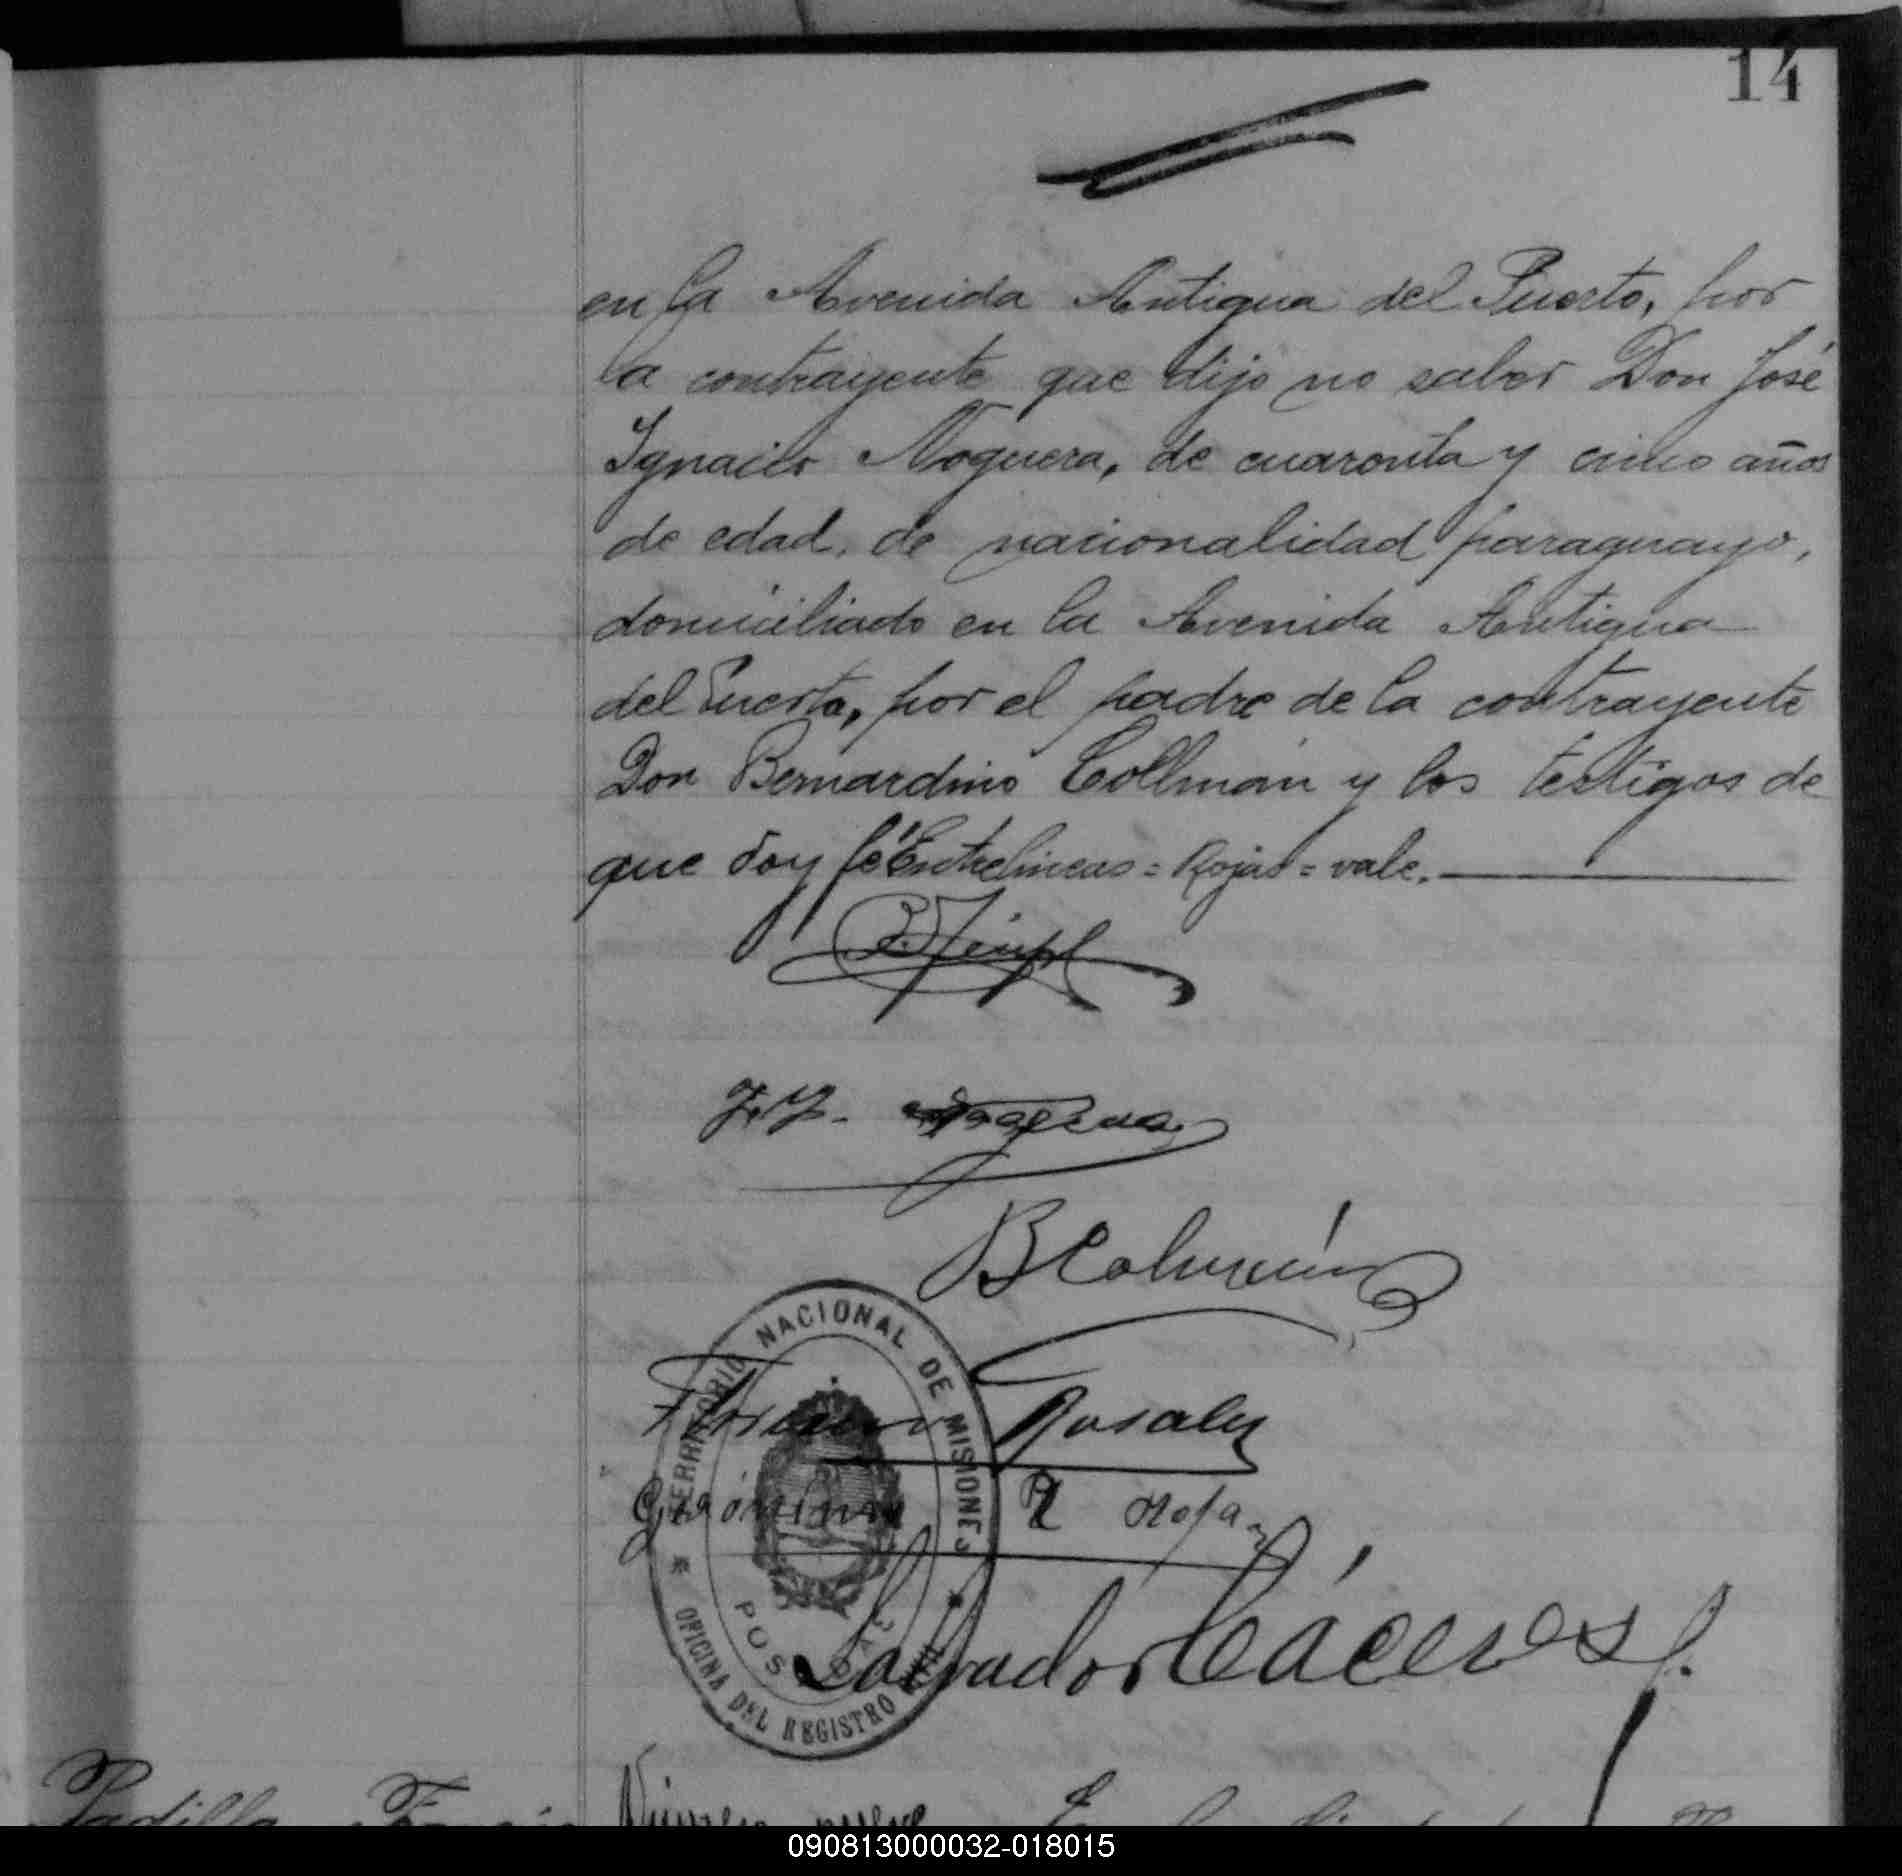 14
en la Avenida Antigua del Puerto, por
la contrayente que dijo no saber Don José
Ignacio Noguera, de cuarenta y cinco años
de edad, de nacionalidad paraguayo,
domiciliado en la Avenida Antigua
del Puerto, por el padre de la contrayente
Don Bernardino Collmán y los testigos de
que doy fé "Entrelineas = Rojas = vale.
J. Y. Noguera
B Colmán
TERRITORIO NACIONAL DE MISIONES
Rosales
Gerónimo R Rojas
Salvador Cáceres
POSADAS
OFICINA DEL REGISTRO CIVIL
Padilla
Número nueve
090813000032-018015